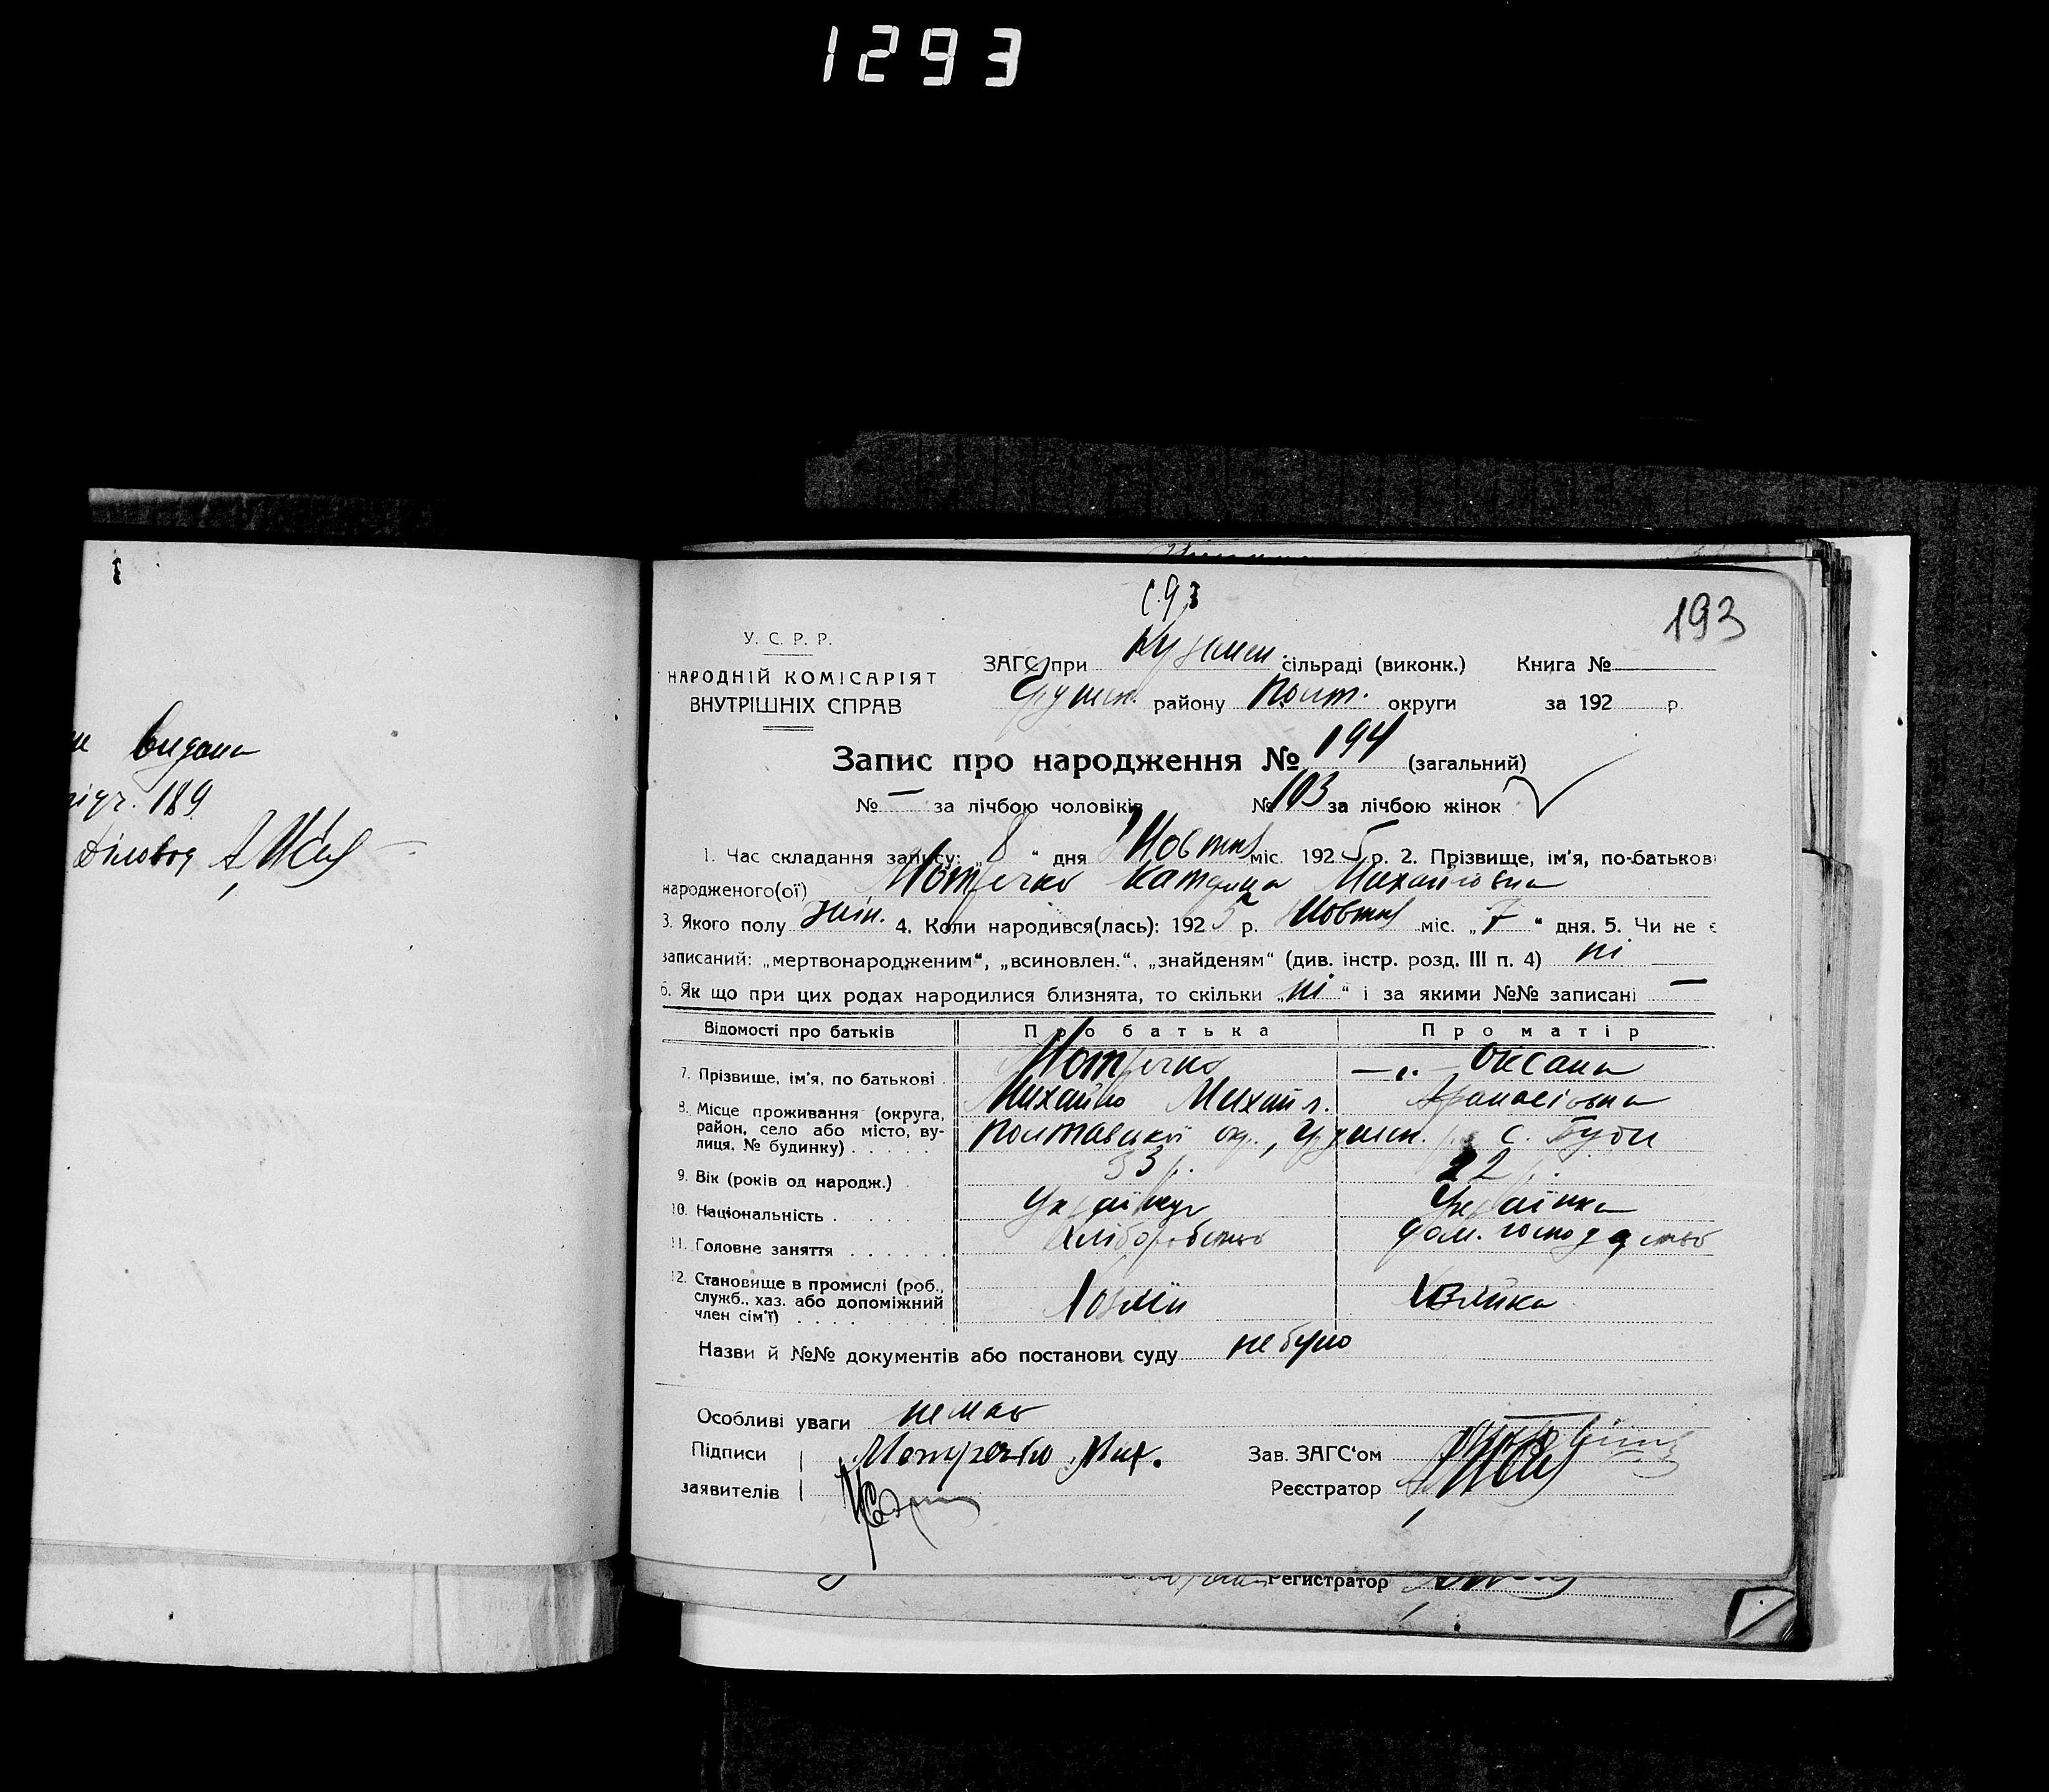 1293
видана
189
Діловод
193
с. 93
У. С. Р. Р.
НАРОДНІЙ КОМІСАРІЯТ
ВНУТРІШНІХ СПРАВ
ЗАГС при Куземен. сільраді (виконк.) Книга №
Грунт. району Полт. округи за 192 р.
Запис про народження № 194 (загальний)
№ — за лічбою чоловіків № 103 за лічбою жінок
1. Час складання запису: „8“ дня Жовтня міс. 1925 р. 2. Прізвище, ім'я, по-батькові
народженого(ої) Мотречко Катерина Михайловна
3. Якого полу жін. 4. Коли народився(лась): 1925 р. Жовтня міс. „7“ дня. 5. Чи не є
записаний: „мертвонародженим“, „всиновлен.“, „знайденям“ (див. інстр. розд. III п. 4) ні
6. Як що при цих родах народилися близнята, то скільки „ні“ і за якими №№ записані —
Відомості про батьків Про батька Про матір
7. Прізвище, ім'я, по батькові Мотречко —„— Оксана
Михайло Михайл. Афанасіовна
8. Місце проживання (округа,
район, село або місто, ву-
лиця, № будинку) Полтавської окр., Грунт. р. с. Буди
9. Вік (років од народж.) 33 р. 22 р.
10. Національність Українець Українка
11. Головне заняття Хліборобство дом. господарство
12. Становище в промислі (роб.,
служб., хаз. або допоміжний
член сім'ї) Хозяїн Хозяйка
Назви й №№ документів або постанови суду не було
Особливі уваги немає
Підписи Мотречко Мих. Зав. ЗАГС'ом
заявителів Реєстратор
Регистратор